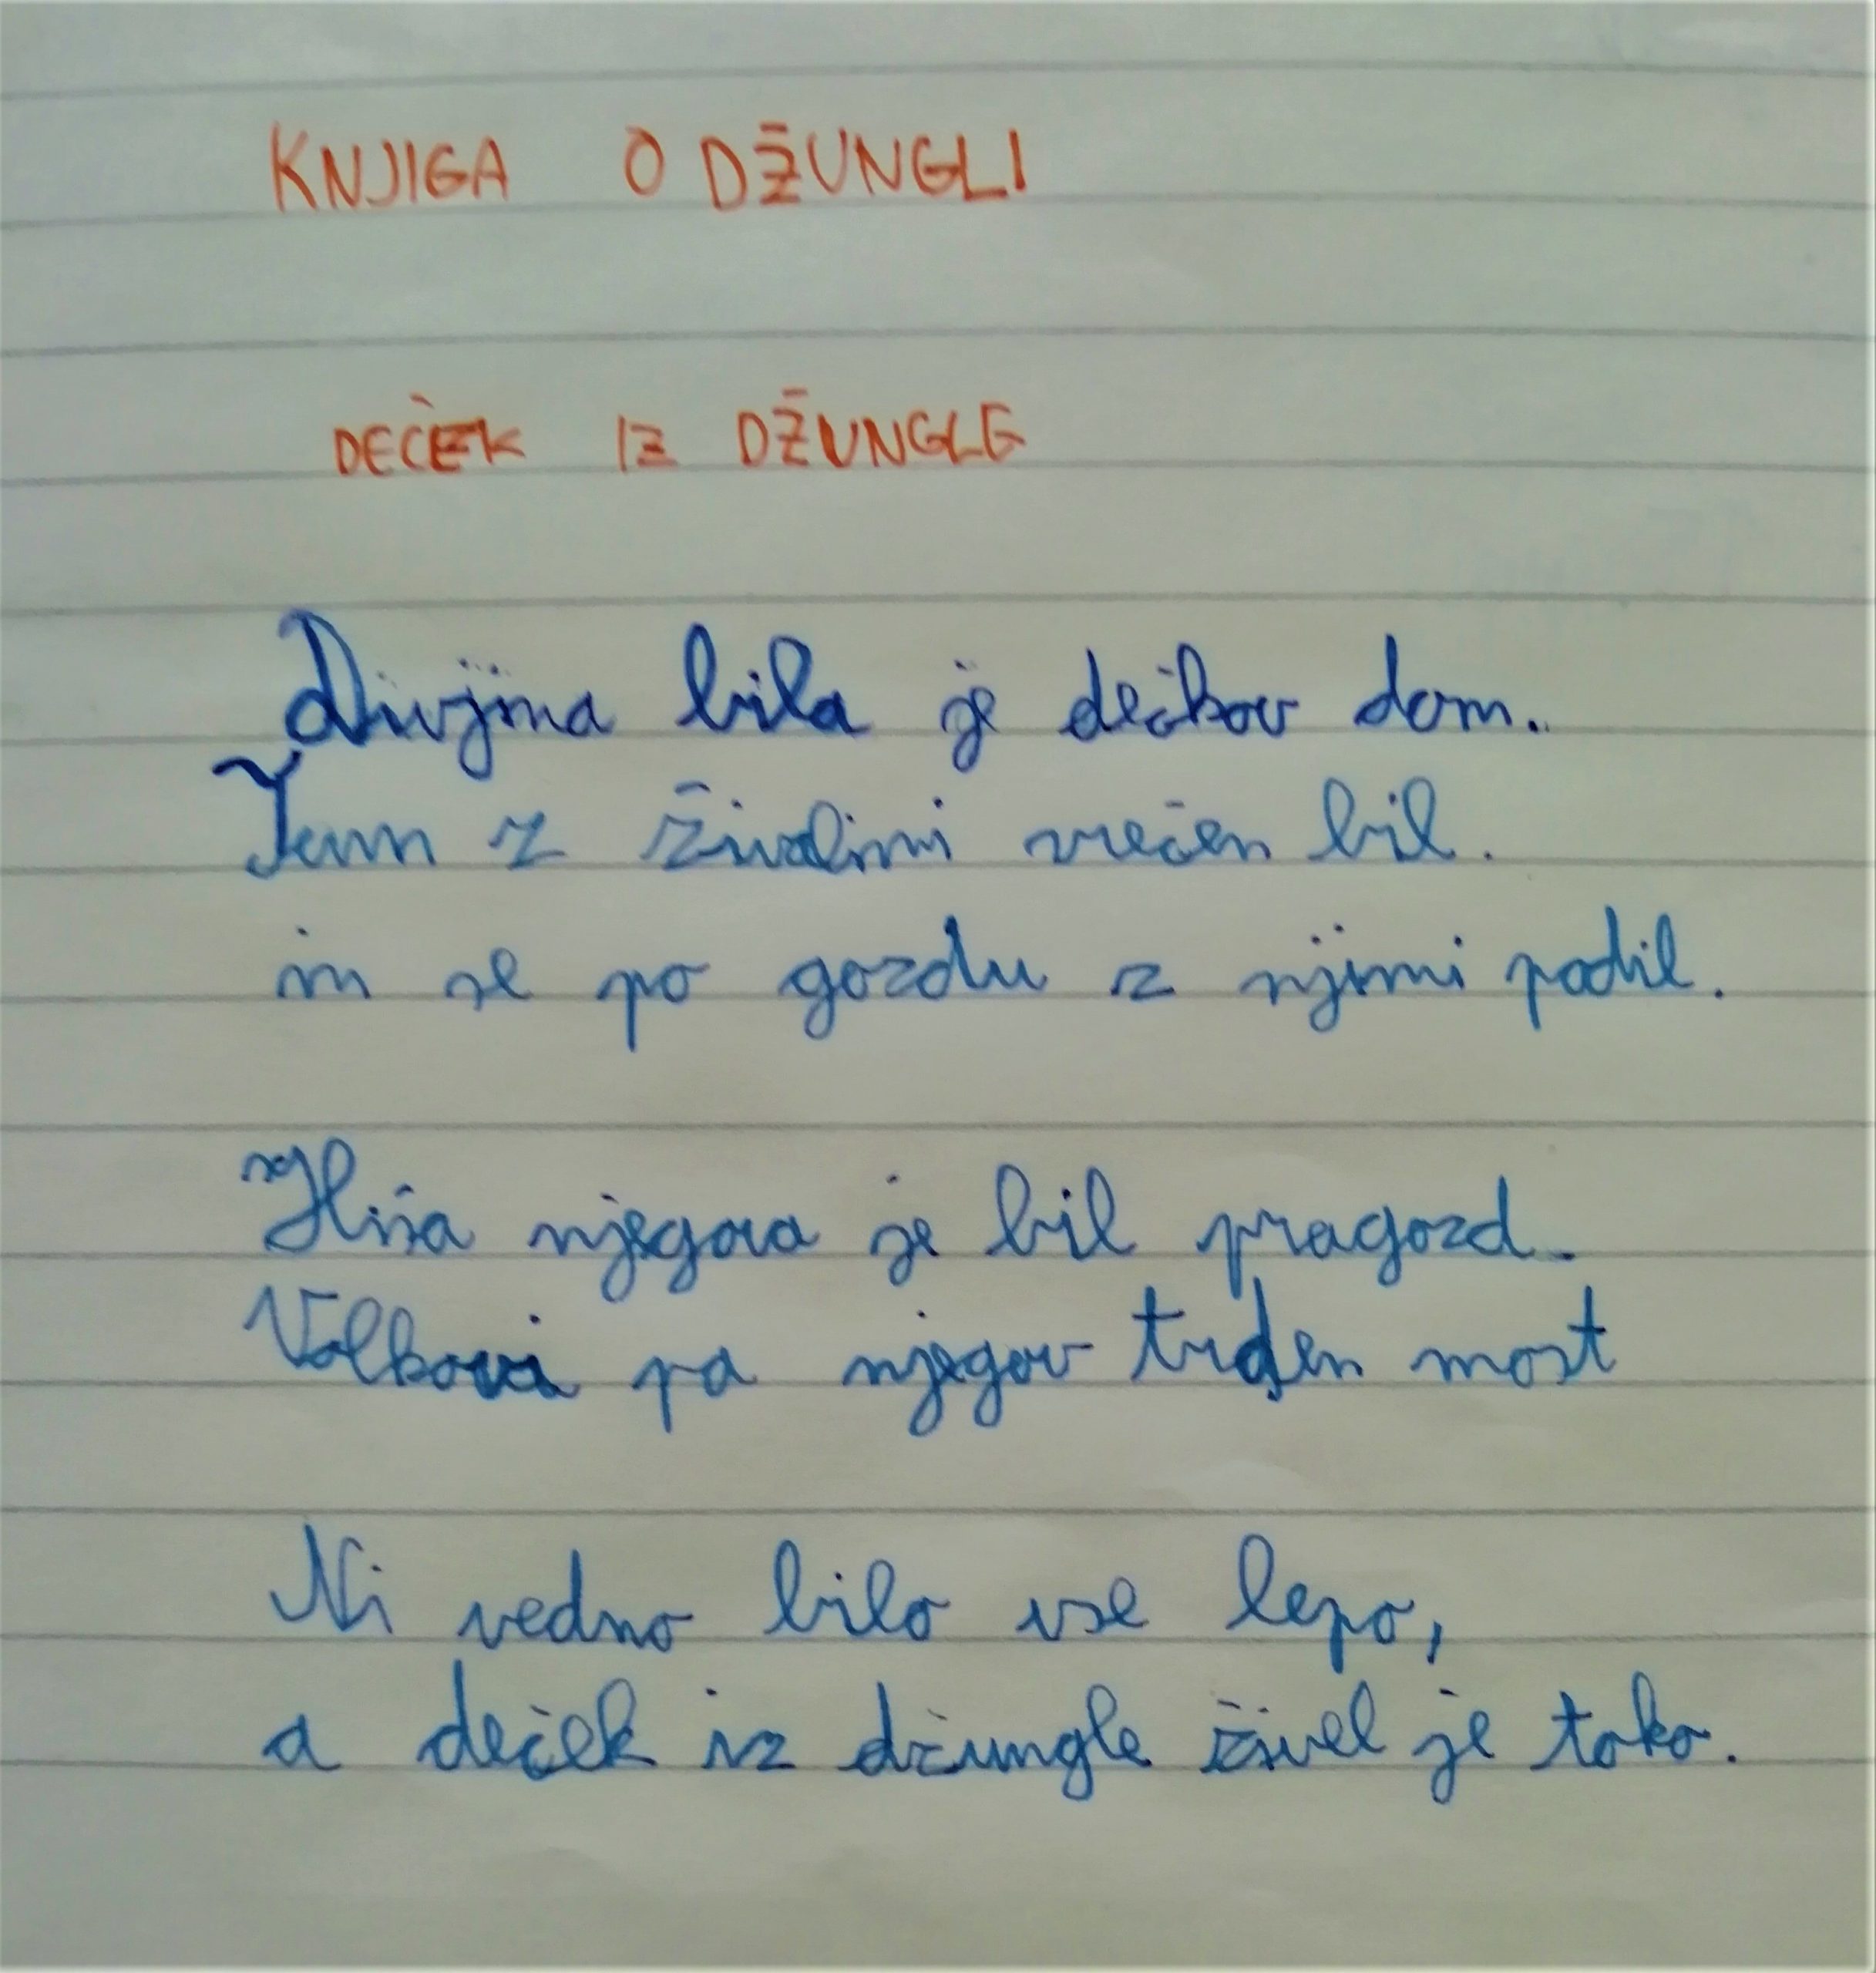 KNJIGA O DŽUNGLI
DEČEK IZ DŽUNGLE
Divjina bila je dečkov dom.
Tam z živalimi srečen bil.
in se po gozdu z njimi podil.
Hiša njegova je bil pragozd.
Volkovi pa njegov trden most
Ni vedno bilo vse lepo,
a deček iz džungle živel je tako.